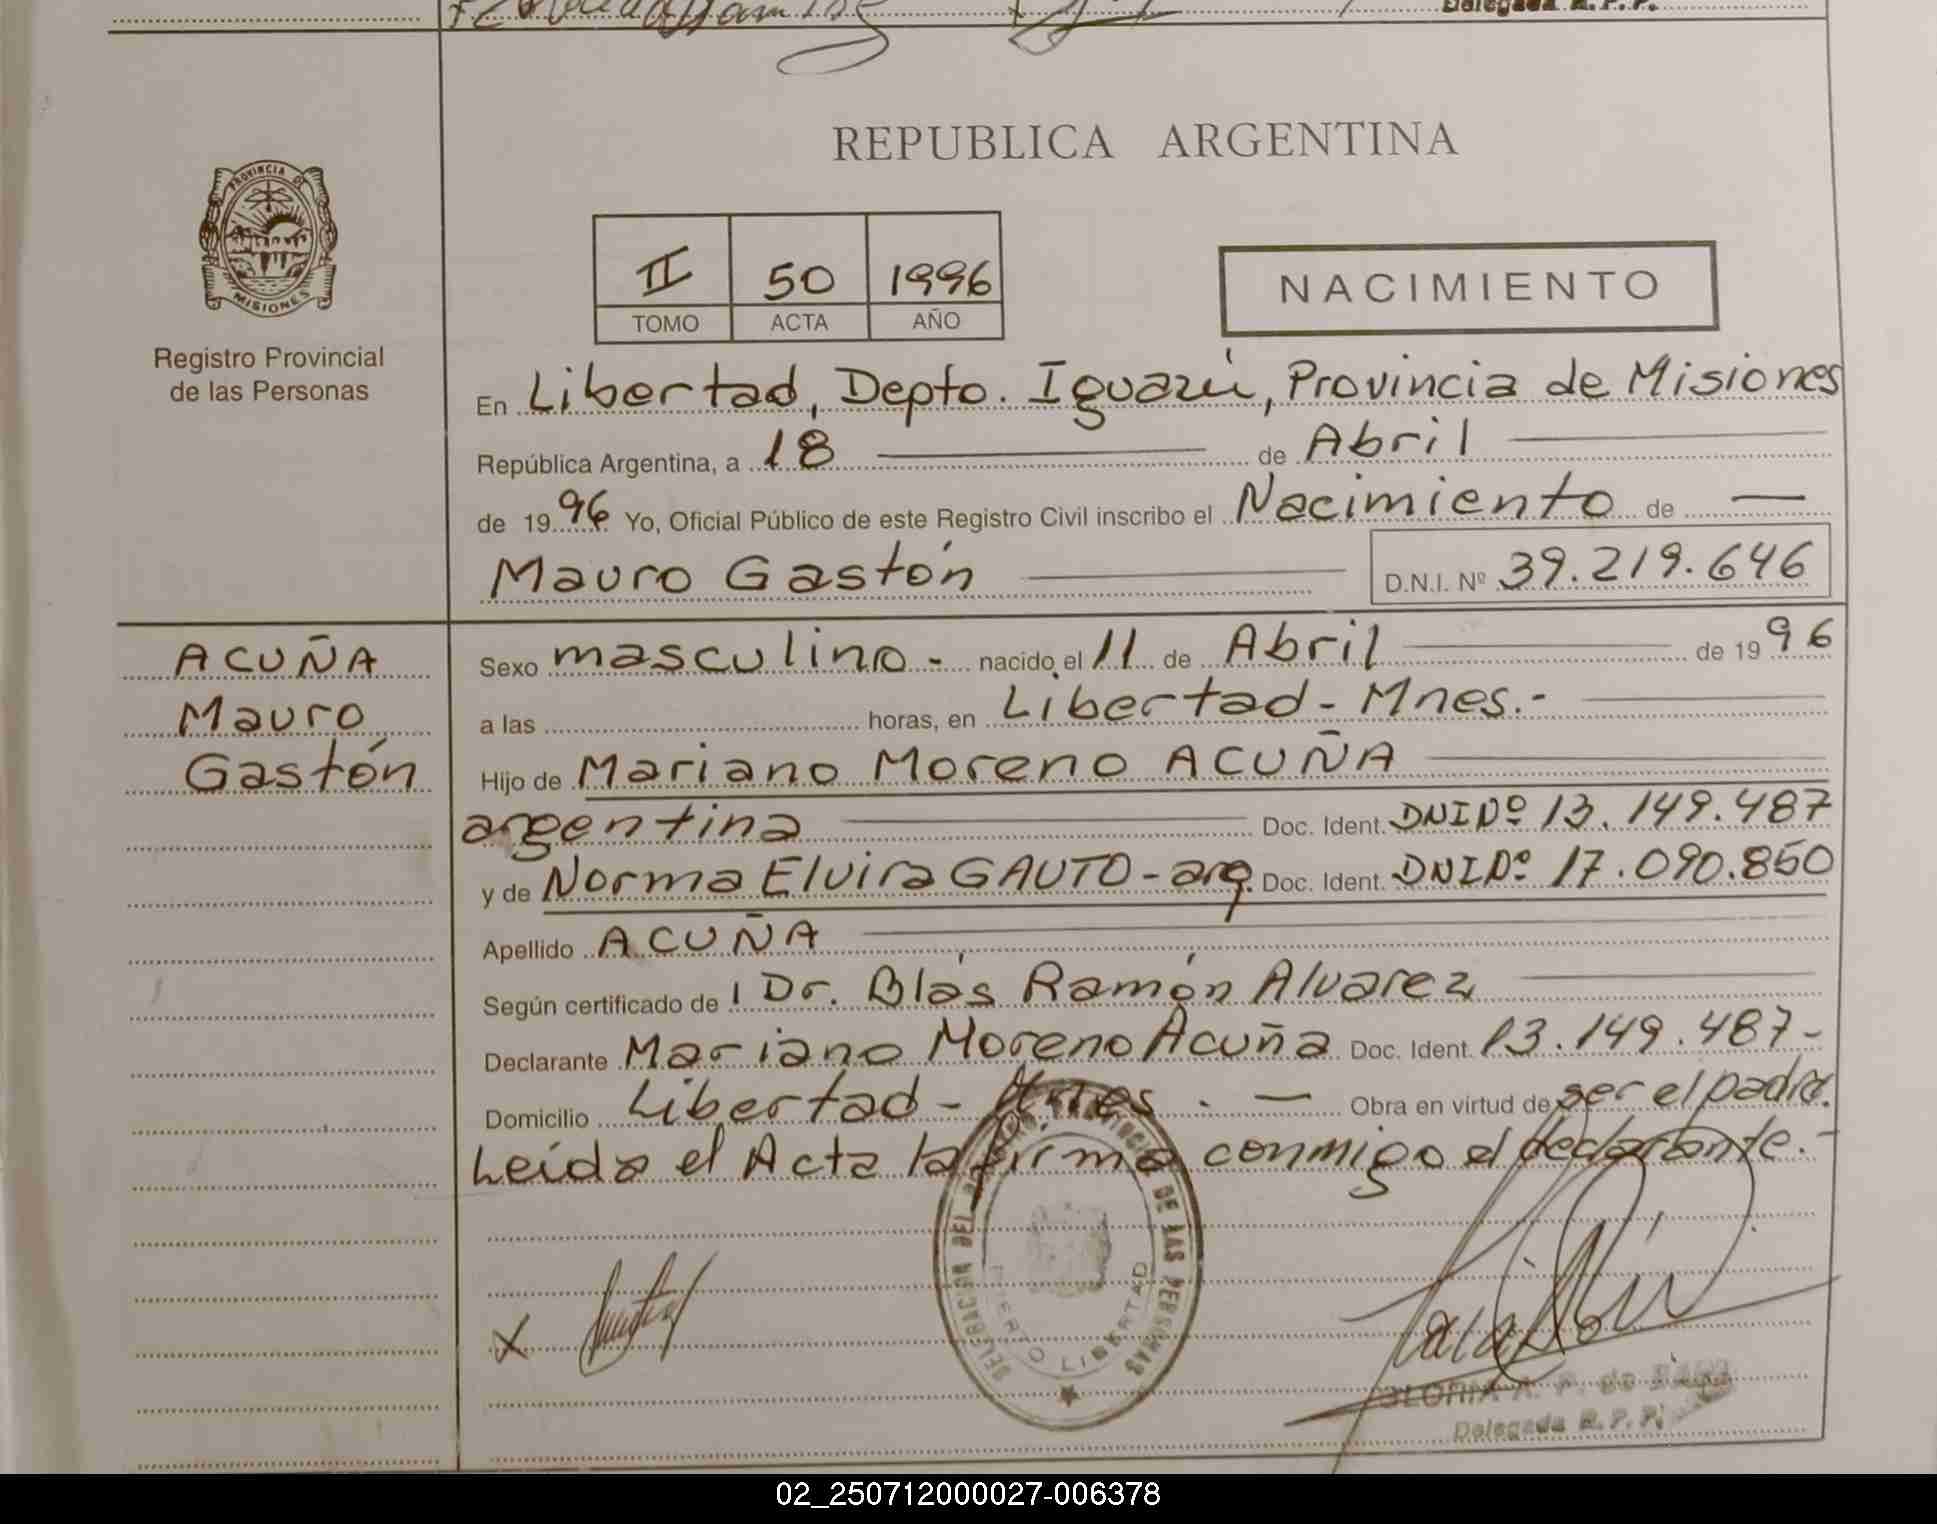 Delegada R.P.P.
REPUBLICA ARGENTINA
PROVINCIA DE
MISIONES
Registro Provincial
de las Personas
II 50 1996
TOMO ACTA AÑO
NACIMIENTO
En Libertad, Depto. Iguazú, Provincia de Misiones
República Argentina, a 18 de Abril
de 1996 Yo, Oficial Público de este Registro Civil inscribo el Nacimiento de —
Mauro Gastón D.N.I. Nº 39.219.646
ACUÑA
Mauro
Gastón
Sexo masculino - nacido el 11 de Abril de 1996
a las horas, en Libertad - Mnes.-
Hijo de Mariano Moreno ACUÑA
argentina Doc. Ident. DNI Nº 13.149.487
y de Norma Elvira GAUTO - arg. Doc. Ident. DNI Nº 17.090.850
Apellido ACUÑA
Según certificado de Dr. Blás Ramón Alvarez
Declarante Mariano Moreno Acuña Doc. Ident. 13.149.487-
Domicilio Libertad - Mnes. — Obra en virtud de ser el padre.
Leída el Acta la firma conmigo el declarante.-
X
DELEGACION DEL REGISTRO PROVINCIAL DE LAS PERSONAS
PUERTO LIBERTAD
GLORIA A. P. de
Delegada R.P.P.
02_250712000027-006378